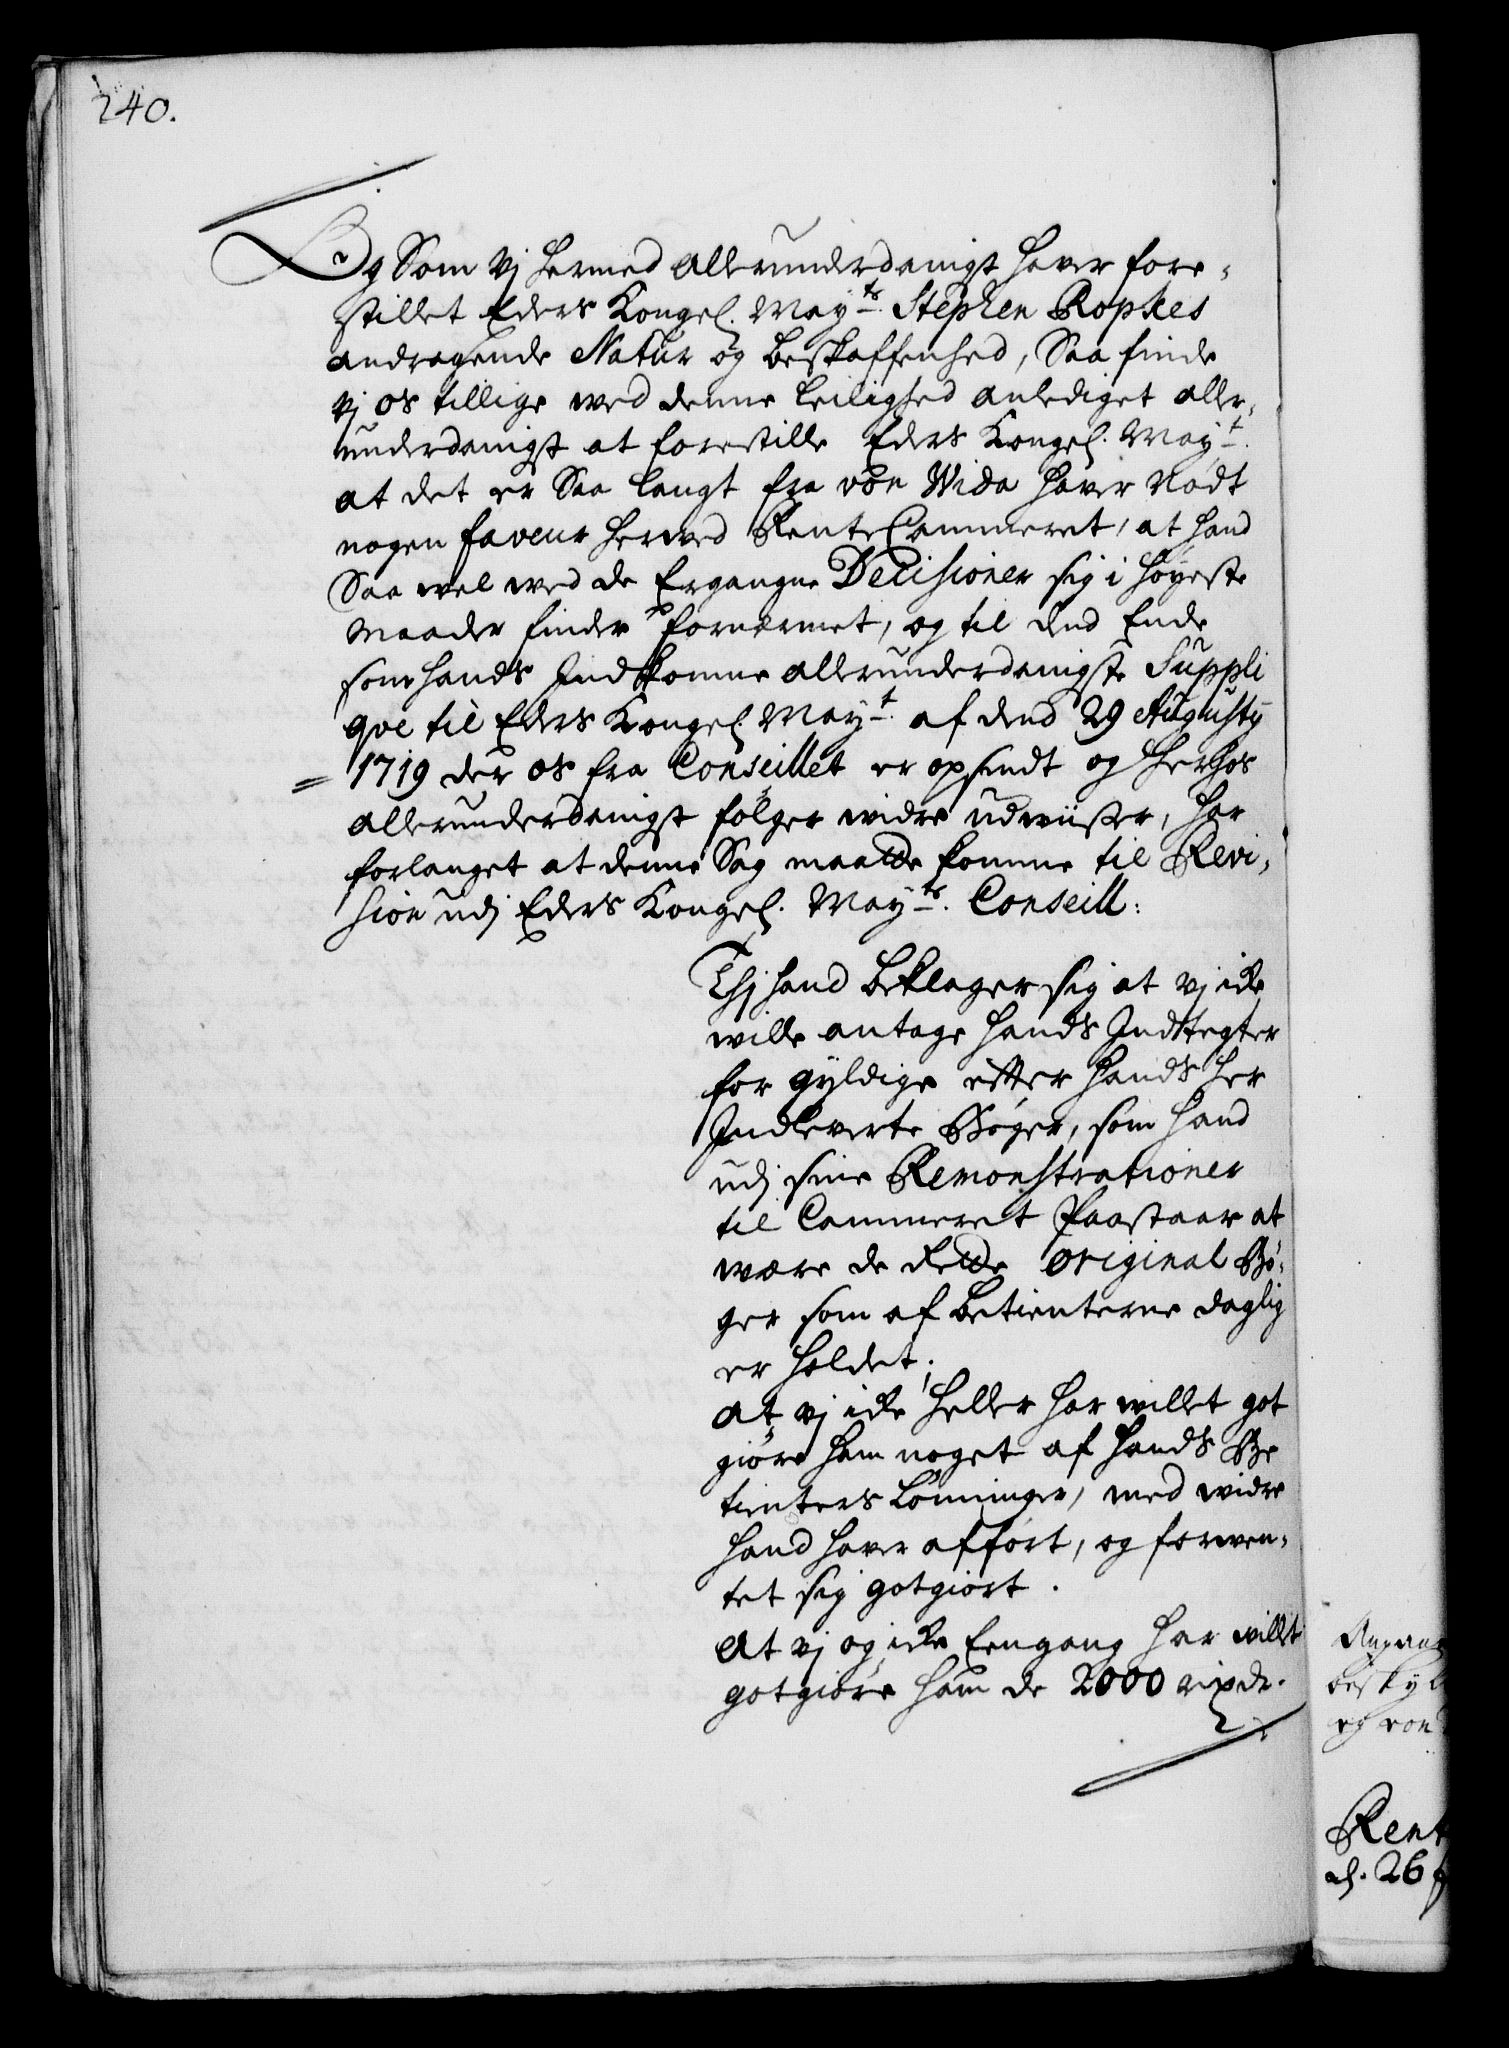 240.
Og Som vj hermed allerunderdanigst haver fore-
stillet Eders Kongel. Mayts. Stephen Ropkes
andragende Natur og beskaffenhed, Saa finde
vj os tillige wed denne leilighed anlediget aller-
underdanigst at forestille Eders Kongel. Mayt.
at det er Saa langt fra von Wida haver nödt
nogen faveur herwed RenteCammeret, at hand
Saa wel wed de Ergangne Decisioner sig i höyeste
maader finder fornermet, og til dend Ende
som hands Indkomne allerunderdanigste Suppli
qve til Eders Kongel. Mayt. af dend 29 Augusty
1719 der os fra Conseillet er opsendt og herhos
allerunderdanigst fölger widre udwiiser, har
forlanget at denne Sag maatte komme til Revi-
sion udj Eders Kongel. Mayts. Conseill:
Thj hand beklager sig at vj icke
wille antage hands Indtegter
for gyldige efter hands her
Indleverte Böger, som hand
udj sine Remonstrationer
til Cammeret Paastaar at
were de rette original Bö-
ger som af betienterne daglig
er holdet;
at vj icke heller har willet got
giöre ham noget af hands Be
tienters lönninger, med widre
hand haver afført, og forwen-
tet sig gotgiort.
At vj og icke Eengang har willet
gotgiöre ham de 2000 rixdr.
besky
og von
Rent
d. 26